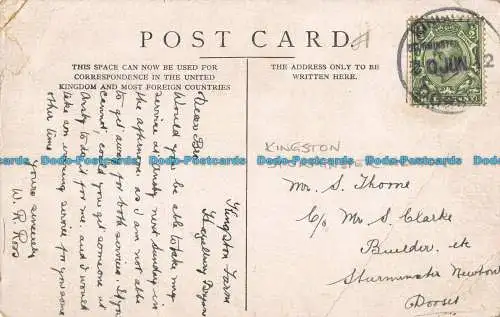 POST CARD
THIS SPACE CAN NOW BE USED FOR
CORRESPONDENCE IN THE UNITED
KINGDOM AND MOST FOREIGN COUNTRIES
THE ADDRESS ONLY TO BE
WRITTEN HERE.
Kingston Farm
Dear
Would you be able to take my
service at next Sunday in
the afternoon. as I am not able
to get away for both services. If you
cannot could you get someone at
to do it for me. and I would
take an evening service for you some
other time
yours sincerely
W. R. Ross
KINGSTON
Mr. S. Thorne
C/o Mr S. Clarke
Builder. etc
Sturminster Newton
Dorset
www.bidstobuy.com